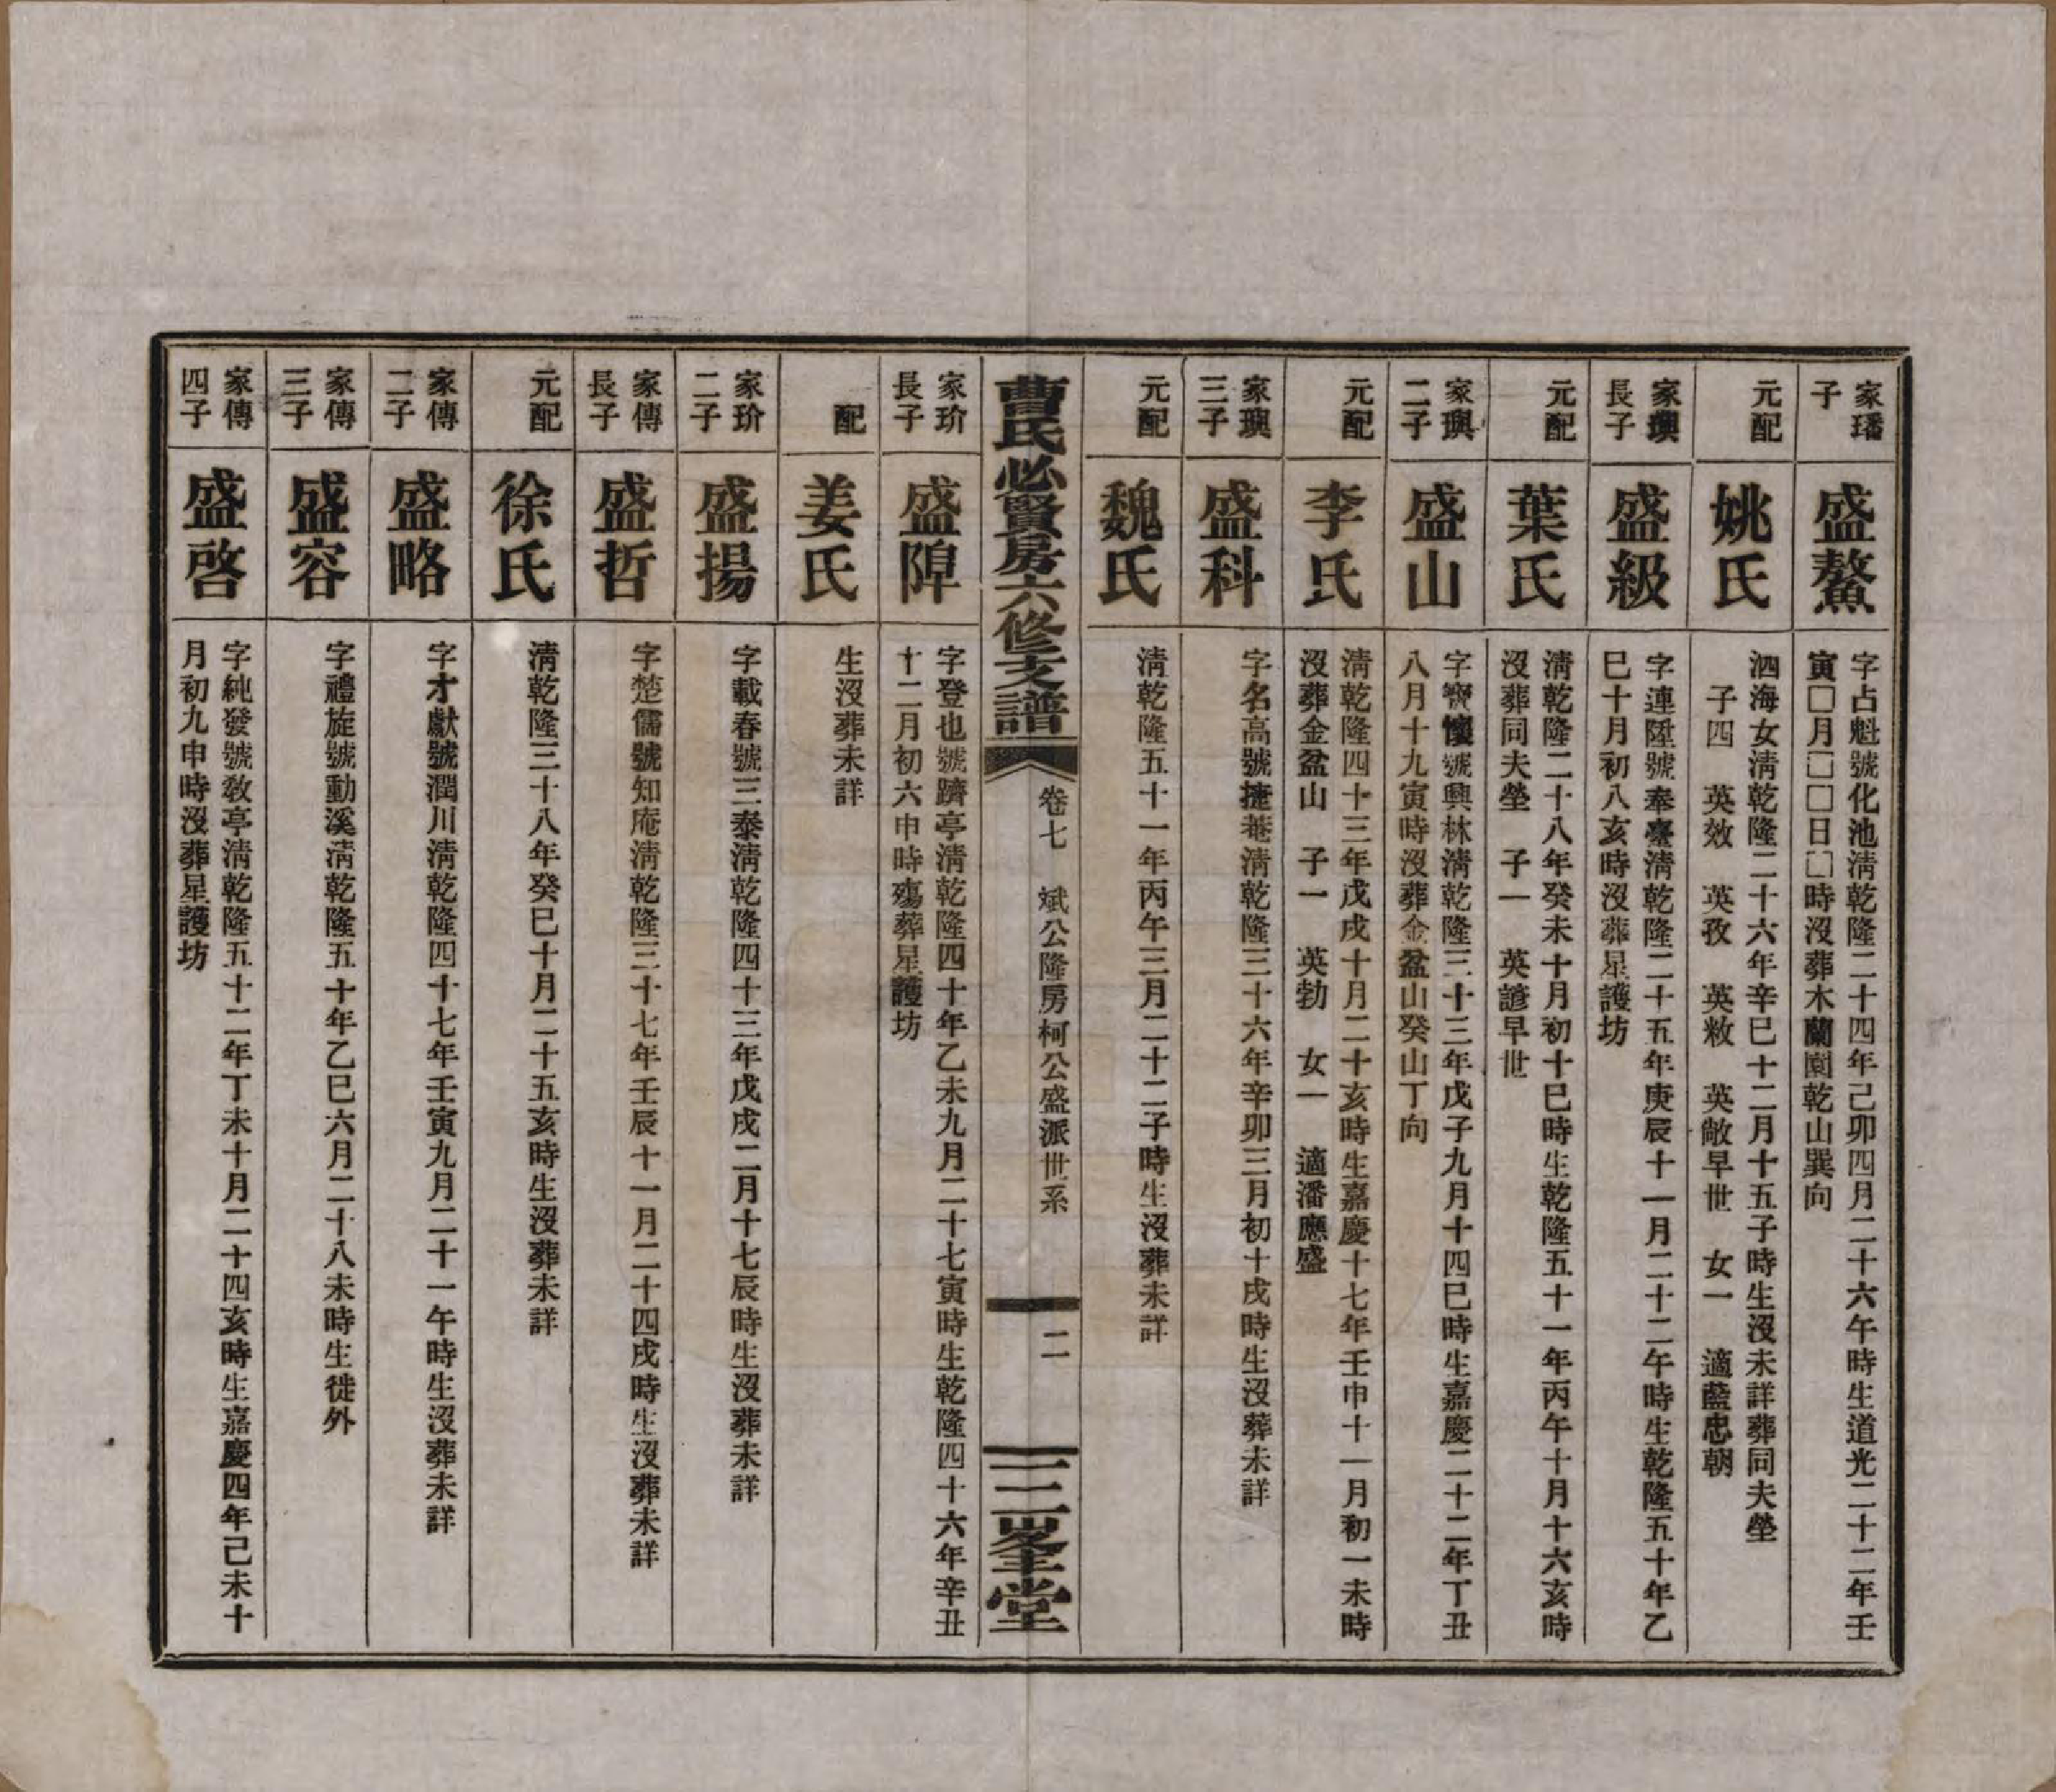 家璠
子
盛鰲
字占魁號化池淸乾隆二十四年己卯四月二十六午時生道光二十二年壬
寅□月□□日□時沒葬木蘭園乾山巽向
元配
姚氏
泗海女淸乾隆二十六年辛巳十二月十五子時生沒未詳葬同夫塋
子四　英效　英孜　英敉　英敞早世　女一　適藍忠朝
家璵
長子
盛級
字連陞號奉臺淸乾隆二十五年庚辰十一月二十二午時生乾隆五十年乙
巳十月初八亥時沒葬星護坊
元配
葉氏
淸乾隆二十八年癸未十月初十巳時生乾隆五十一年丙午十月十六亥時
沒葬同夫塋　子一　英諺早世
家璵
二子
盛山
字寶懷號興林淸乾隆三十三年戊子九月十四巳時生嘉慶二十二年丁丑
八月十九寅時沒葬金盆山癸山丁向
元配
李氏
淸乾隆四十三年戊戌十月二十亥時生嘉慶十七年壬申十一月初一未時
沒葬金盆山　子一　英勃　女一　適潘應盛
家璵
三子
盛科
字名高號捷菴淸乾隆三十六年辛卯三月初十戌時生沒葬未詳
元配
魏氏
淸乾隆五十一年丙午三月二十二子時生沒葬未詳
曹氏必賢房六修支譜
卷七　斌公隆房柯公盛派世系
二
三峯堂
家玠
長子
盛隍
字登也號躋亭淸乾隆四十年乙未九月二十七寅時生乾隆四十六年辛丑
十二月初六申時殤葬星護坊
配
姜氏
生沒葬未詳
家玠
二子
盛揚
字載春號三泰淸乾隆四十三年戊戌二月十七辰時生沒葬未詳
家傳
長子
盛哲
字楚儒號知庵淸乾隆三十七年壬辰十一月二十四戌時生沒葬未詳
元配
徐氏
淸乾隆三十八年癸巳十月二十五亥時生沒葬未詳
家傳
二子
盛略
字才獻號潤川淸乾隆四十七年壬寅九月二十一午時生沒葬未詳
家傳
三子
盛容
字禮旋號動溪淸乾隆五十年乙巳六月二十八未時生徙外
家傳
四子
盛啓
字純發號敎亭淸乾隆五十二年丁未十月二十四亥時生嘉慶四年己未十
月初九申時沒葬星護坊